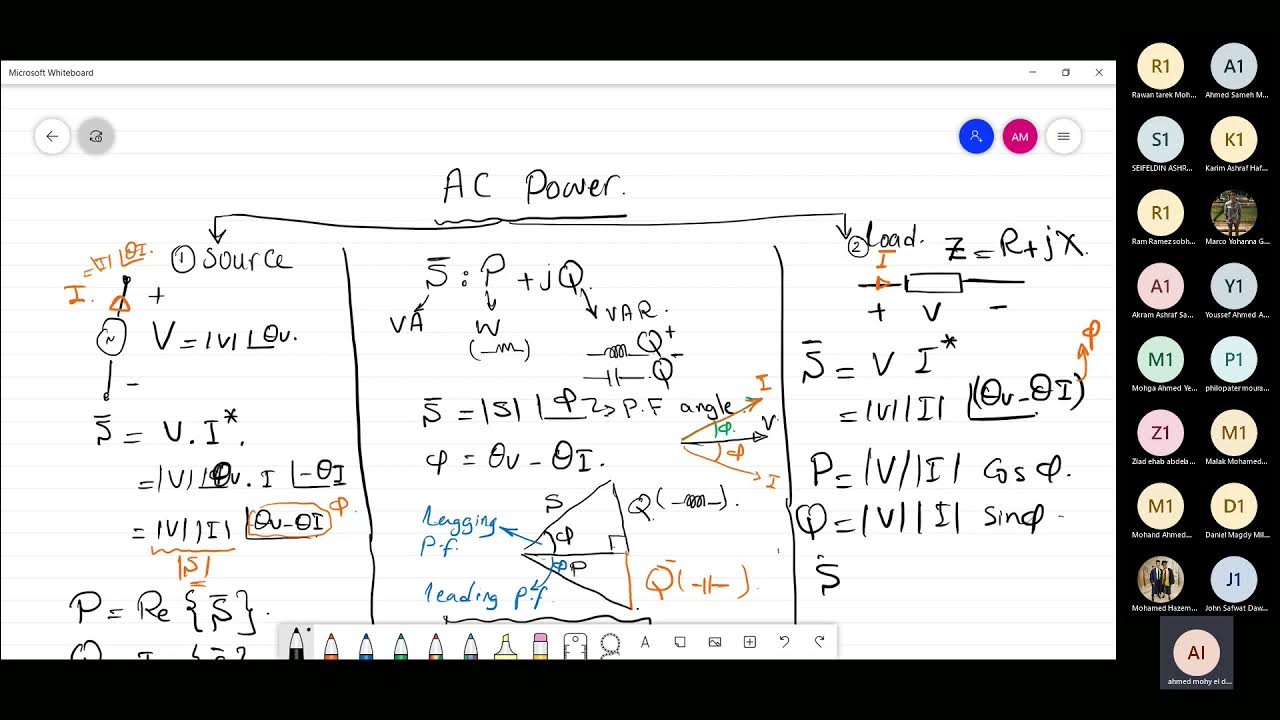 Microsoft Whiteboard
AM
AC Power.
① Source
I.
=|I|∠θI.
+
~
V = |V| ∠θv.
-
S̄ = V.I*.
= |V| ∠θv . I ∠-θI
= |V| |I| ∠θv-θI φ
|S|
P = Re {S̄}.
S̄ : P + jQ
VA
W
VAR.
Q+
Q-
S̄ = |S| ∠φ → P.F angle.
φ = θv - θI.
I
φ.
V
φ
I
S
Q
φ
lagging
P.f.
P
φ
leading p.f.
Q-
② Load.
Z = R + jX.
I
+ V -
S̄ = V I*
= |V| |I| ∠(θv - θI)
φ
P = |V| |I| Cos φ.
Q = |V| |I| sin φ.
S̄
A
R1
A1
Rawan tarek Moh...
Ahmed Sameh M...
S1
K1
SEIFELDIN ASHR...
Karim Ashraf Haf...
R1
Ram Ramez sobh...
Marco Yohanna G...
A1
Y1
Akram Ashraf Sa...
Youssef Ahmed A...
M1
P1
Mohga Ahmed Ye...
philopater moura...
Z1
M1
Ziad ehab abdela...
Malak Mohamed...
M1
D1
Mohand Ahmed...
Daniel Magdy Mil...
J1
Mohamed Hazem...
John Safwat Daw...
AI
ahmed mohy el d...